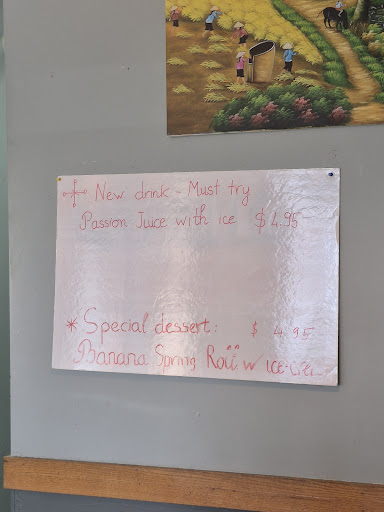 New drink - Must try
Passion Juice with ice $4.95
* Special dessert: $ 4.95
Banana Spring Roll w